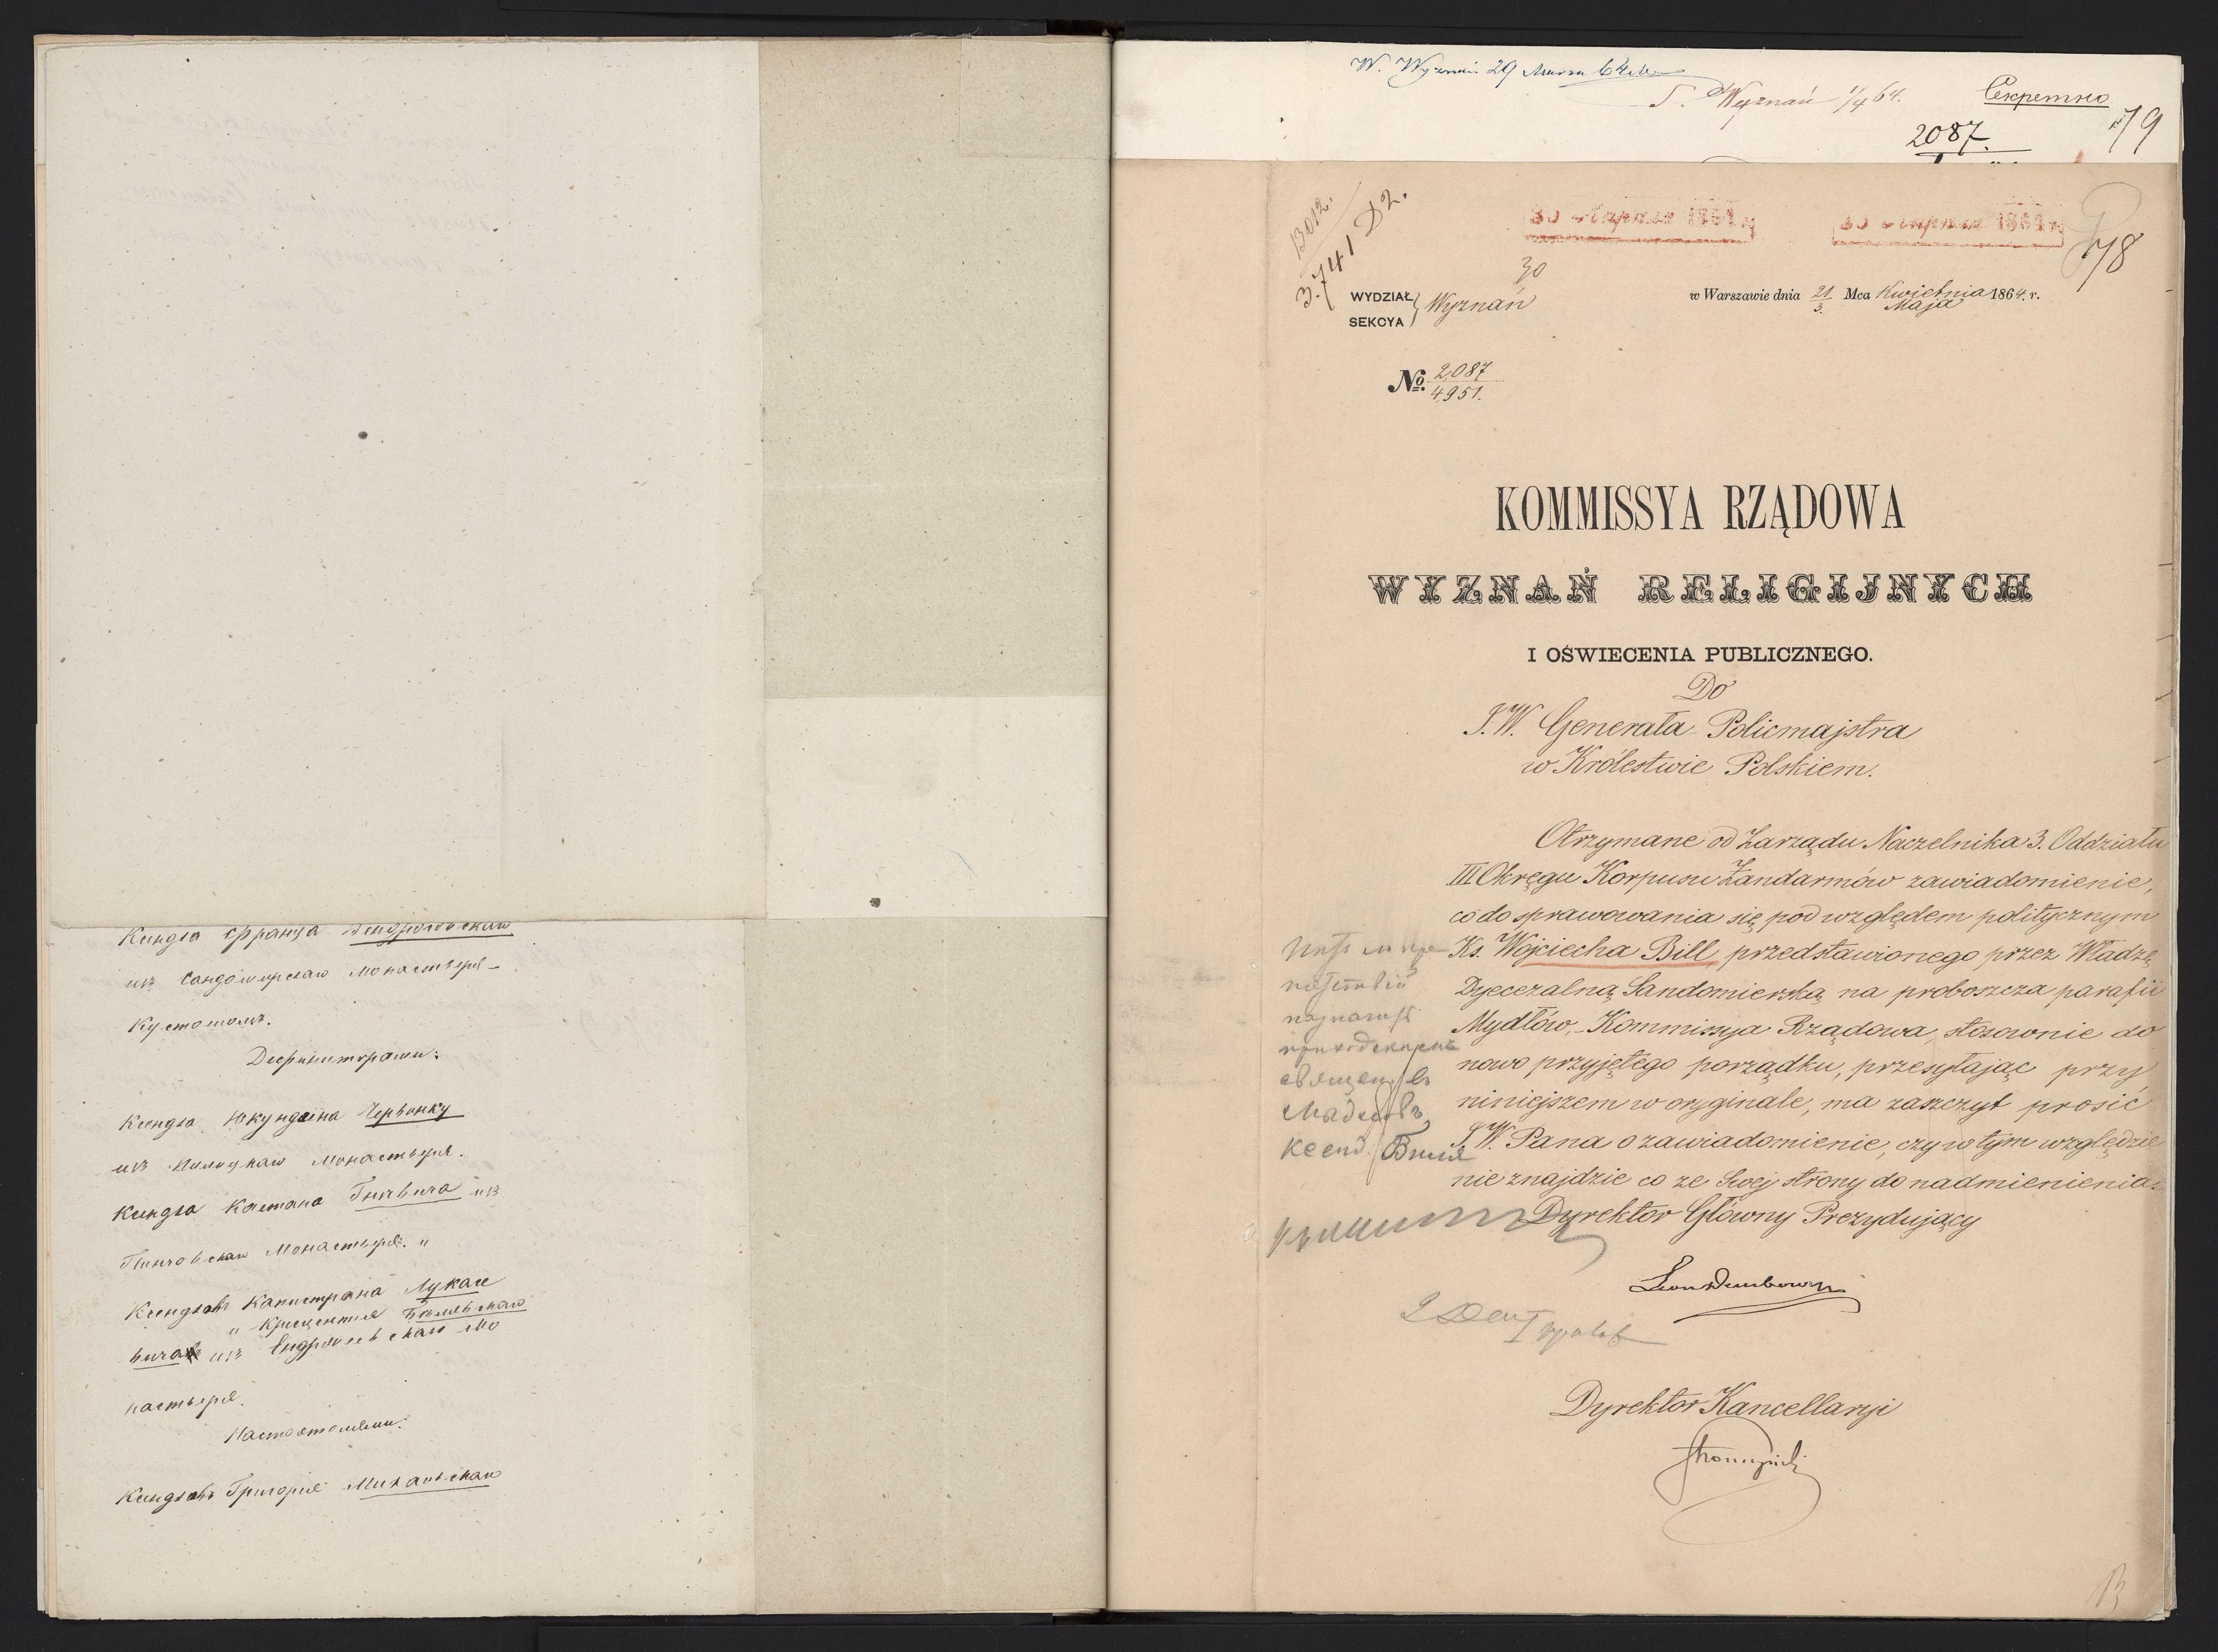 Ксендза Франца
изъ Сандомирскаго Монастыря –
Кустошомъ.
Дефиниторами:
Ксендза Юкундина Червонку
изъ Монастыря.
Ксендза Каетана из
Пинчовскаго Монастыря. "
Ксендзовъ Капистрана Лукасе
" Крисцентія
вича изъ Ендржеевскаго Мо
настыря.
Настоятелями:
Ксендзовъ Григорія
W. Wyznań 29 Marca 64
S. Wyznań 1/4 64.
Секретно
2087.
79
13012.
3.741 D2.
30 Sierpnia 1864 r
30 Sierpnia 1864 r
78
30
WYDZIAŁ
SEKCYA } Wyznań
w Warszawie dnia 21/3. Mca Kwietnia/Maja 1864. r.
No. 2,087/4,951.
KOMMISSYA RZĄDOWA
WYZNAŃ RELIGIJNYCH
I OŚWIECENIA PUBLICZNEGO.
Do
J.W. Generała-Policmajstra
w Królestwie Polskiem.
Otrzymane od Zarządu Naczelnika 3. Oddziału
III Okręgu Korpusu Żandarmów zawiadomienie,
co do sprawowania się pod względem politycznym
Ks. Wojciecha Bill, przedstawionego przez Władzę
Dyecezalną Sandomierską na proboszcza parafii
Mydłów, - Kommissya Rządowa, stosownie do
nowo przyjętego porządku, przesyłając przy
niniejszem w oryginale, ma zaszczyt prosić
J.W. Pana o zawiadomienie, czy w tym względzie
nie znajdzie co ze Swej strony do nadmienienia.
Dyrektor Główny Prezydujący
Leon Dembowski
Dyrektor Kancellaryi